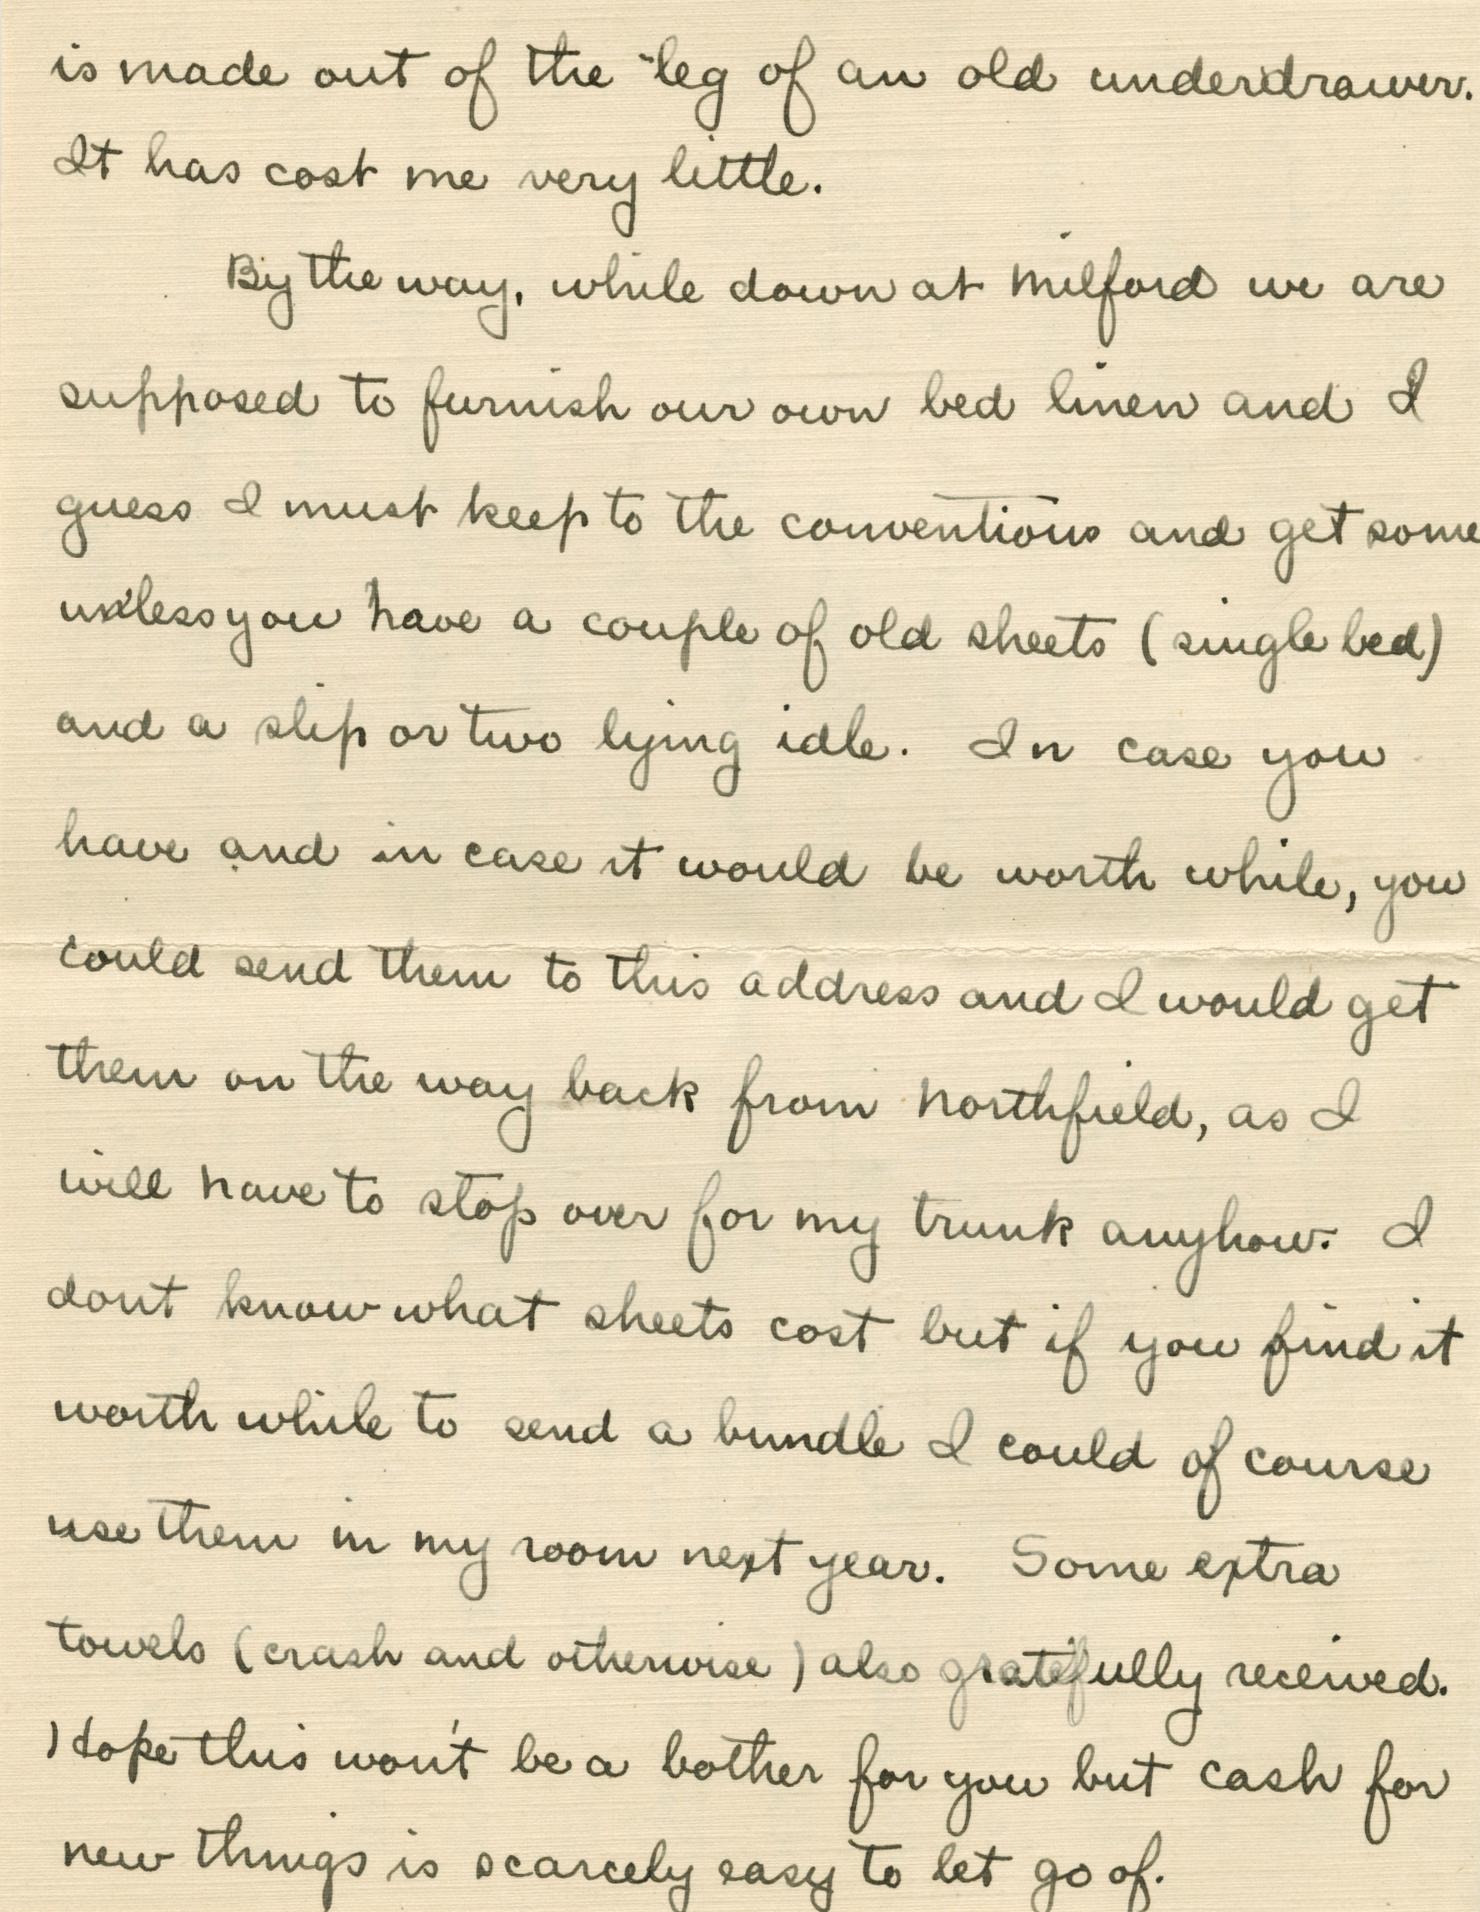 is made out of the leg of an old underdrawer.
It has cost me very little.
By the way, while down at Milford we are
supposed to furnish our own bed linen and I
guess I must keep to the conventions and get some
unless you have a couple of old sheets (single bed)
and a slip or two lying idle. In case you
have and in case it would be worth while, you
could send them to this address and I would get
them on the way back from Northfield, as I
will have to stop over for my trunk anyhow. I
dont know what sheets cost but if you find it
worth while to send a bundle I could of course
use them in my room next year. Some extra
towels (crash and otherwise) also gratefully received.
Hope this won't be a bother for you but cash for
new things is scarcely easy to let go of.